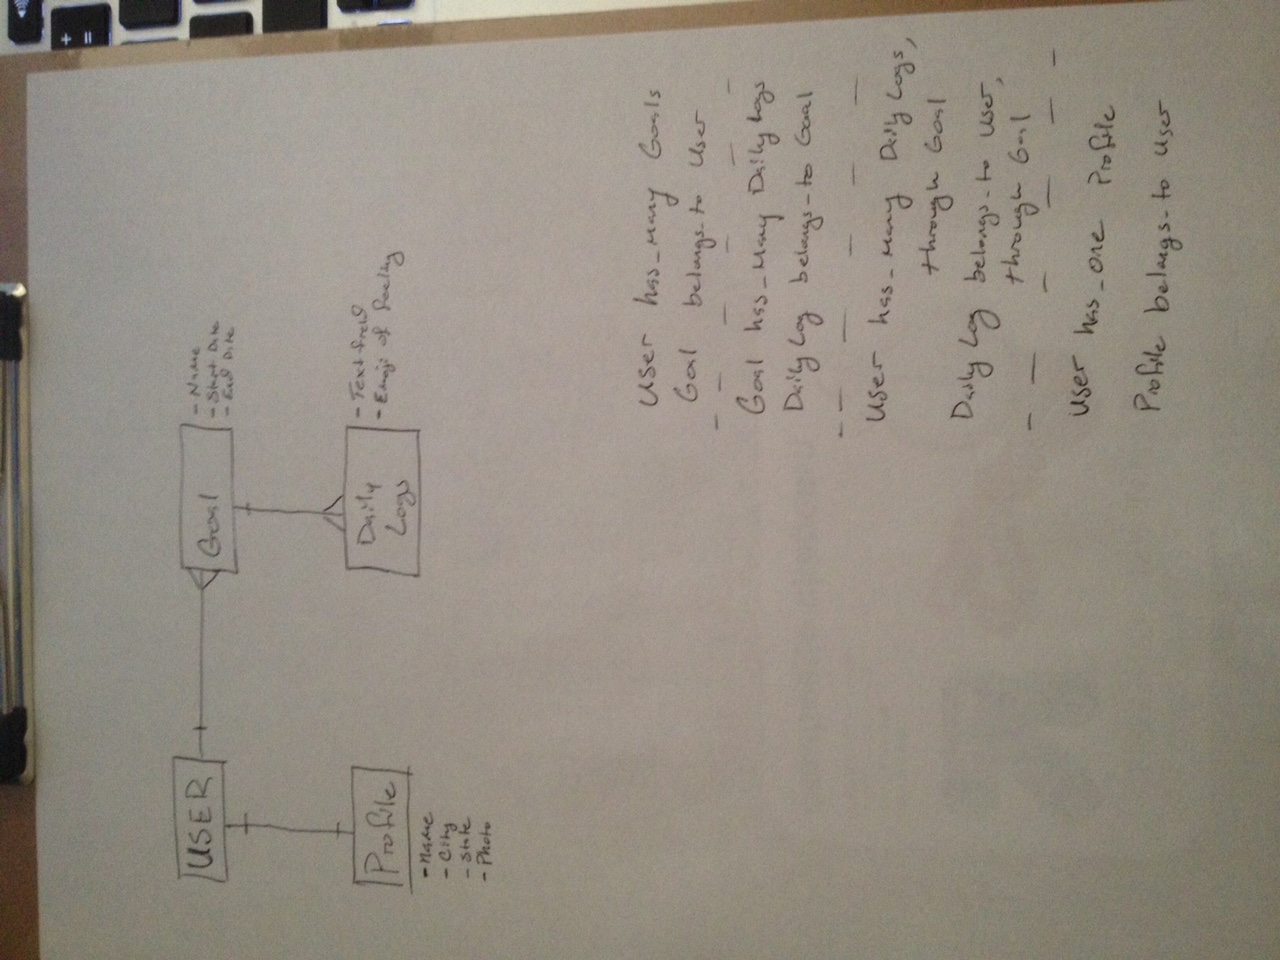 USER
Goal
- Name
- Start Date
- End Date
Profile
- Name
- City
- State
- Photo
Daily
Logs
- Text field
- Emoji of feeling
User has_many Goals
Goal belongs_to User
Goal has_many Daily Logs
Daily Log belongs_to Goal
User has_many Daily Logs,
through Goal
Daily Log belongs_to User,
through Goal
User has_one Profile
Profile belongs_to User
+
=